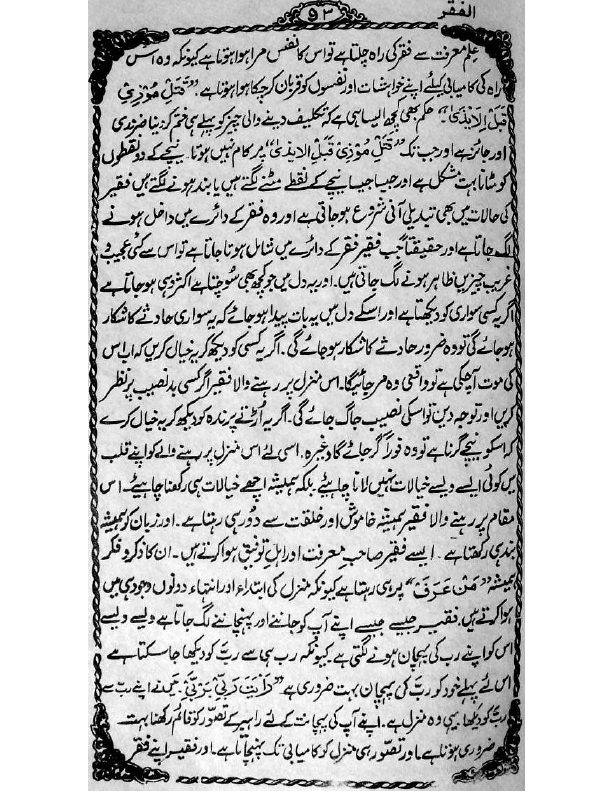 الفقر
۹۳
علمِ معرفت سے فقر کی راہ چلتا ہے تو اس کا نفس مرا ہوا ہوتا ہے کیونکہ وہ اس
راہ کی کامیابی کیلئے اپنے خواہشات اور نفسوں کو قربان کر چکا ہوا ہوتا ہے۔ "قَتَلَ مُوْذِیْ
قَبلَ الِایذیٰ"۔ حکم بھی کچھ ایسا ہی ہے کہ تکلیف دینے والی چیز کو پہلے ہی ختم کر دینا ضروری
اور جائز ہے اور جب تک "قَتَلَ مُوْذِیْ قَبلَ الایذیٰ" پر کام نہیں ہوتا۔ نیچے کے دو نقطوں
کو مٹانا بہت مشکل ہے اور جیسا جیسا نیچے کے نقطے مٹنے لگتے ہیں یا بند ہونے لگتے ہیں فقیر
کی حالات میں بھی تبدیلی آنی شروع ہو جاتی ہے اور وہ فقر کے دائرے میں داخل ہونے
لگ جاتا ہے اور حقیقتاً جب فقیر فقر کے دائرے میں شامل ہوتا جاتا ہے تو اس سے کئی عجیب و
غریب چیزیں ظاہر ہونے لگ جاتی ہیں۔ اور یہ دل میں جو کچھ بھی سُوچتا ہے اکثر وہی ہو جاتا ہے
اگر یہ کسی سواری کو دیکھتا ہے اور اسکے دل میں یہ بات پیدا ہو جائے کہ یہ سواری حادثے کا شکار
ہو جائے گی تو وہ ضرور حادثے کا شکار ہو جائے گی۔ اگر یہ کسی کو دیکھ کر یہ خیال کریں کہ اب اس
کی موت آچکی ہے تو واقعی وہ مر جائیگا۔ اس منزل پر رہنے والا فقیر اگر کسی بد نصیب پر نظر
کریں اور توجہ دیں تو اسکی نصیب جاگ جائے گی۔ اگر یہ اُڑتے پرندہ کو دیکھ کر یہ خیال کرے
کہ اسکو نیچے گرنا ہے تو وہ فوراً گر جائے گا وغیرہ۔ اسی لئے اس منزل پر رہنے والے کو اپنے قلب
میں کوئی ایسے ویسے خیالات نہیں لانا چاہئیے بلکہ ہمیشہ اچھے خیالات ہی رکھنا چاہئیے۔ اس
مقام پر رہنے والا فقیر ہمیشہ خاموش اور خلقت سے دُور ہی رہتا ہے۔ اور زبان کو ہمیشہ
بند ہی رکھتا ہے۔ ایسے فقیر صاحبِ معرفت اور اہلِ توفیق ہوا کرتے ہیں۔ ان کا ذکر و فکر
ہمیشہ "مَنْ عَرَفَ" پر ہی رہتا ہے کیونکہ منزل کی ابتداء اور انتہاء دونوں وجود ہی میں
ہوا کرتے ہیں۔ فقیر جیسے جیسے اپنے آپ کو جاننے اور پہچاننے لگ جاتا ہے ویسے ویسے
اس کو اپنے رب کی پہچان ہونے لگتی ہے کیونکہ رب ہی سے ربّ کو دیکھا جا سکتا ہے
اس لئے پہلے خود کو ربّ کی پہچان بہت ضروری ہے "رَاَیتُ رَبِّیْ بَرَبّیْ"۔ میں نے اپنے ربّ سے
ربّ کو دیکھا۔ یہی وہ منزل ہے۔ اپنے آپ کی پہچانت کے لئے راہبر کے تصوّر کو قائم رکھنا بہت
ضروری ہوتا ہے۔ اور تصوّر ہی منزل کو کامیابی تک پہنچاتا ہے۔ اور فقیر اپنے فقر